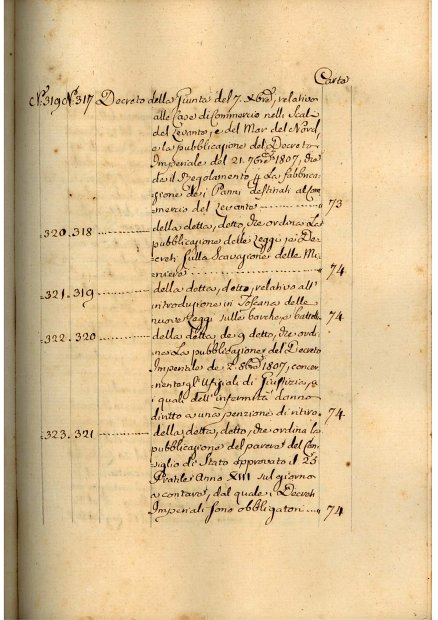 Carta
N.° 319 N.° 317 Decreto della Giunta del 7. Xbre, relativo
alle Case di Commercio nelli Scali
del Levante, e del Mar del Nord,
e la pubblicazione del Decreto
Imperiale del 21. 7bre 1807, che
dà il Regolamento p. la fabbrica-
zione dei Panni destinati al Com-
mercio del Levante ........ 73
320. 318 ........ della detta, detto, che ordina la
pubblicazione delle Leggi, e De-
creti sulla Scavazione delle Mi-
niere ........ 74.
321. 319 ........ della detta, detto, relativo all'
introduzione in Toscana delle
nuove Leggi sulle barche, e battelli 74.
322. 320 ........ della detta de 9 detto, che ordi-
na la pubblicazione del Decreto
Imperiale de 2. 8bre 1807, concer-
nente gl'Ufiziali di Giustizia, a
i quali dell'infermità danno
diritto a una penzione di ritiro. 74.
323. 321 ........ della detta, detto, che ordina la
pubblicazione del parere del Con-
siglio di Stato approvato il 25
Pratile Anno XIII sul giorno
a contare dal quale i Decreti
Imperiali sono obbligatori ... 74